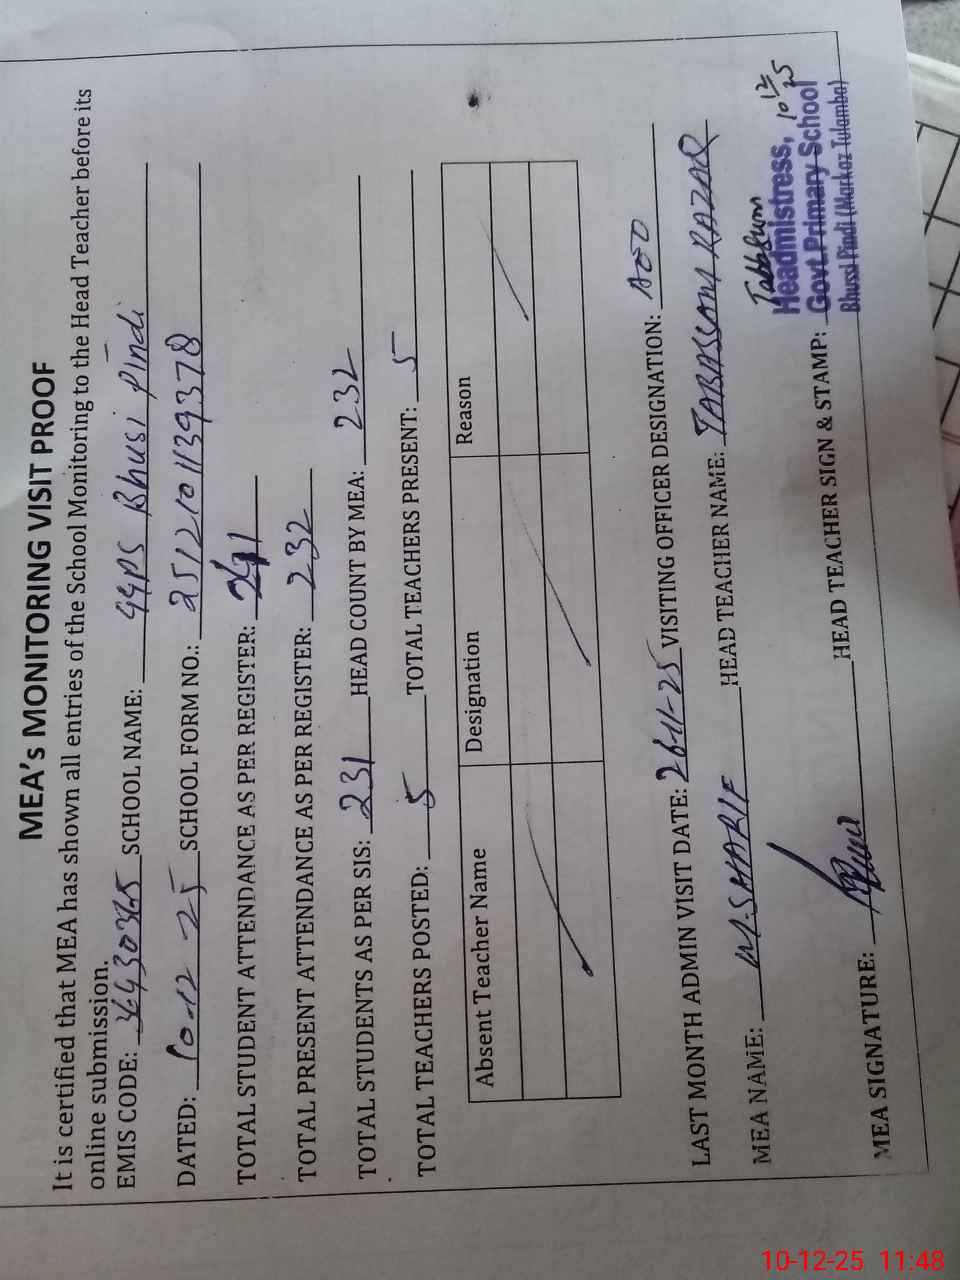 MEA's MONITORING VISIT PROOF
It is certified that MEA has shown all entries of the School Monitoring to the Head Teacher before its
online submission.
EMIS CODE: 36430365 SCHOOL NAME: GGPS Bhusi Pindi
DATED: 10-12-25 SCHOOL FORM NO.: 2512101139378
TOTAL STUDENT ATTENDANCE AS PER REGISTER:
TOTAL PRESENT ATTENDANCE AS PER REGISTER: 232
TOTAL STUDENTS AS PER SIS: 231 HEAD COUNT BY MEA: 232
TOTAL TEACHERS POSTED: 5 TOTAL TEACHERS PRESENT: 5
Absent Teacher Name Designation Reason
LAST MONTH ADMIN VISIT DATE: 26-11-25 VISITING OFFICER DESIGNATION:
MEA NAME: M.SHARIF HEAD TEACHER NAME:
MEA SIGNATURE: HEAD TEACHER SIGN & STAMP:
Headmistress, 10/12/25
Govt.Primary School
Bhussi Pindi (Markaz Tulamba)
10-12-25 11:48